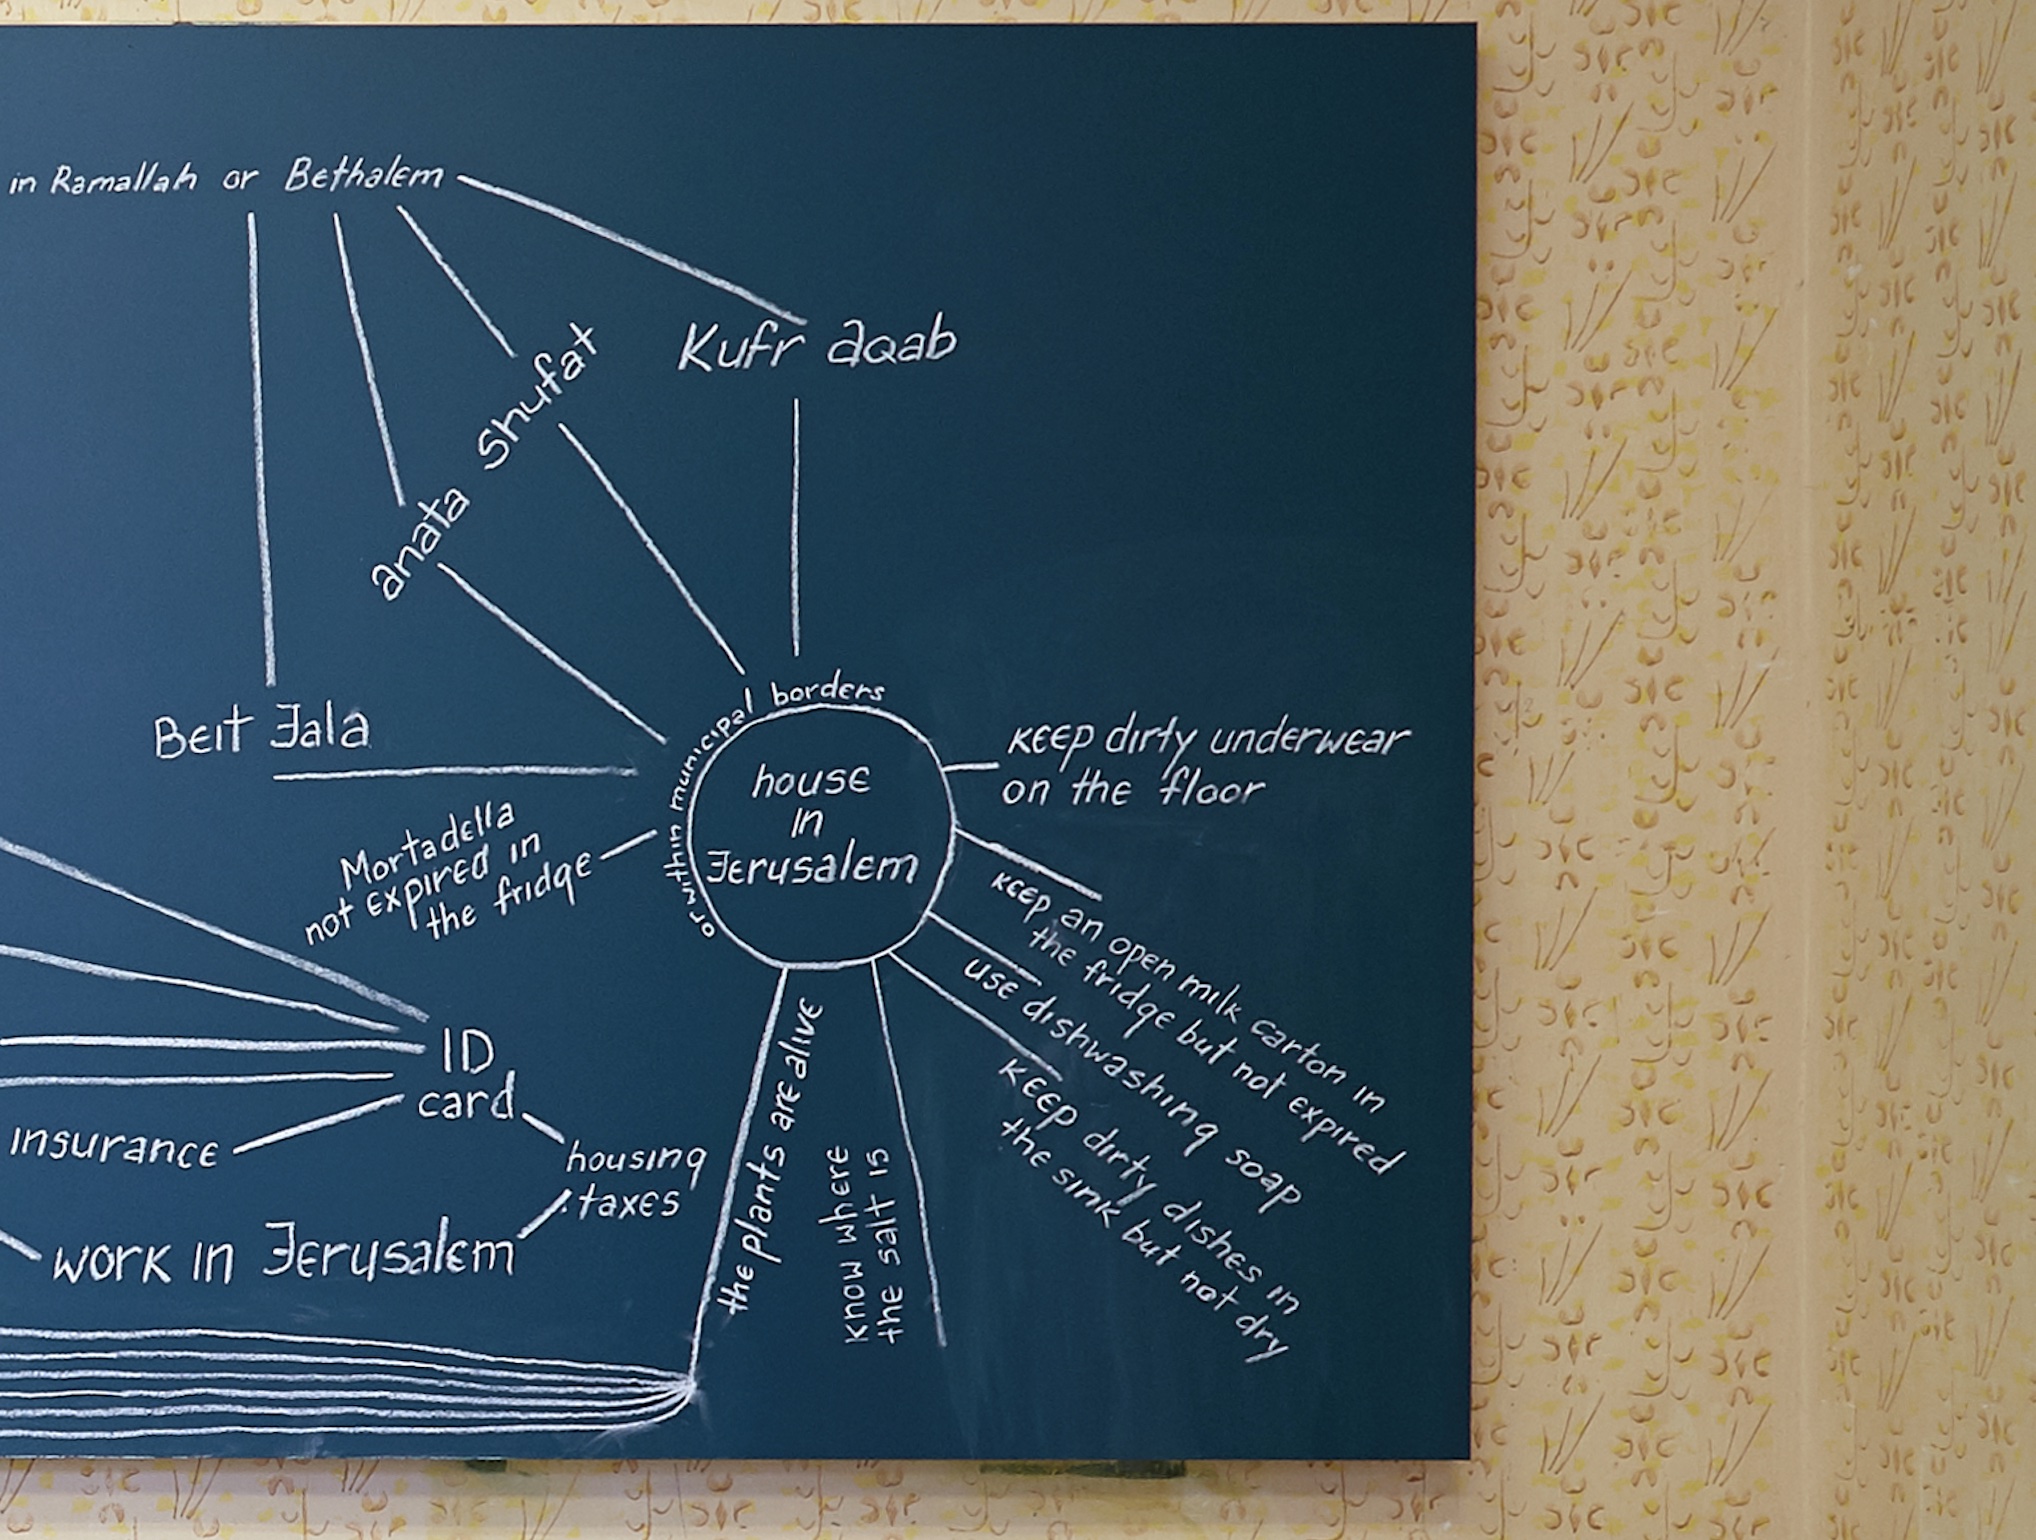 in Ramallah or Bethalem
Kufr aqab
Shufat
anata
Beit Jala
or within municipal borders
house
in
Jerusalem
Keep dirty underwear
on the floor
Mortadella
not expired in
the fridge
keep an open milk carton in
the fridge but not expired
use dishwashing soap
keep dirty dishes in
the sink but not dry
know where
the salt is
the plants are alive
ID
card
insurance
housing
taxes
work in Jerusalem